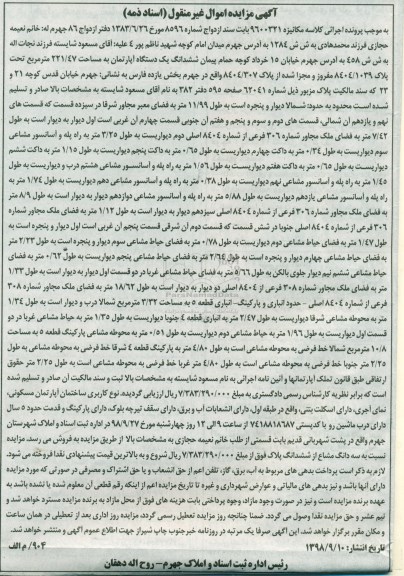 آگهی مزایده اموال غیرمنقول (اسناد ذمه)
به موجب پرونده اجرائی کلاسه مکانیزه ۹۶۰۰۳۳۱ بابت سند ازدواج شماره ۸۵۹۶ مورخ ۱۳۸۳/۶/۲۶ دفتر ازدواج ۸۶ جهرم له: خانم نعیمه
حجازی فرزند محمدهادی به ش ش ۱۲۸۴ به آدرس جهرم میدان امام کوچه شهید ناظم پور ۴ علیه: آقای مسعود شایسته فرزند نجات اله
به ش ش ۴۵۸ به آدرس جهرم خیابان ۱۵ خرداد کوچه حمام پیمان ششدانگ یک دستگاه آپارتمان به مساحت ۲۲۱/۴۷ مترمربع تحت
پلاک ۸۴۰۴/۱۰۳۹ مفروز و مجزا شده از پلاک ۸۴۰۴/۳۰۷ واقع در جهرم بخش یازده فارس به نشانی: جهرم خیابان قدس کوچه ۲۱ و
۲۳ که سند مالکیت پلاک مزبور ذیل شماره ۶۲۰۴۱ صفحه ۵۹۵ دفتر ۳۸۲ به نام آقای مسعود شایسته به مشخصات بالا صادر و تسلیم
شده است محدود به حدود: شمالا دیوار و پنجره است به طول ۱۱/۹۹ متر به فضای معبر مجاور شرقا در سیزده قسمت که قسمت های
نهم و یازدهم آن شمالی، قسمت های دوم و سوم و پنجم و هفتم آن جنوبی قسمت چهارم آن غربی است اول دیوار به دیوار است به طول
۷/۴۲ متر به فضای ملک مجاور شماره ۳۰۶ فرعی از شماره ۸۴۰۴ اصلی دوم دیواریست به طول ۳/۲۵ متر به راه پله و آسانسور مشاعی
سوم دیواریست به طول ۰/۳۴ متر به داکت چهارم دیواریست به طول ۰/۶۵ متر به داکت پنجم دیواریست به طول ۱/۱۵ متر به داکت ششم
دیواریست به طول ۰/۶۵ متر به داکت هفتم دیواریست به طول ۱/۵۶ متر به راه پله و آسانسور مشاعی هشتم درب و دیواریست به طول
۱/۴۵ متر به راه پله و آسانسور مشاعی نهم دیواریست به طول ۰/۳۸ متر به راه پله و آسانسور مشاعی دهم دیواریست به طول ۱/۷۴ متر به
راه پله و آسانسور مشاعی یازدهم دیواریست به طول ۵/۸۸ متر به راه پله و آسانسور مشاعی دوازدهم دیوار به دیوار است به طول ۸/۹ متر
به فضای ملک مجاور شماره ۳۰۶ فرعی از شماره ۸۴۰۴ اصلی سیزدهم دیوار به دیوار است به طول ۱/۱۲ متر به فضای ملک مجاور شماره
۳۰۶ فرعی از شماره ۸۴۰۴ اصلی جنوبا در شش قسمت که قسمت دوم آن شرقی قسمت پنجم آن غربی است اول دیوار و پنجره است به
طول ۱/۴۷ متر به فضای حیاط مشاعی دوم دیواریست به طول ۰/۷۸ متر به فضای حیاط مشاعی سوم دیوار و پنجره است به طول ۲/۲۳ متر
به فضای حیاط مشاعی چهارم دیوار و پنجره است به طول ۲/۶۴ متر به فضای حیاط مشاعی پنجم دیواریست به طول ۰/۶۲ متر به فضای
حیاط مشاعی ششم نیم دیوار جلوی بالکن به طول ۵/۶۶ متر به فضای حیاط مشاعی غربا در دو قسمت اول دیوار به دیوار است به طول ۱/۳۳
متر به فضای ملک مجاور شماره ۳۰۸ فرعی از ۸۴۰۴ اصلی دو دیوار به دیوار است به طول ۱۸/۶۲ متر به فضای ملک مجاور شماره ۳۰۸
فرعی از شماره ۸۴۰۴ اصلی - حدود انباری و پارکینگ- انباری قطعه ۵ به مساحت ۳/۳۲ مترمربع شمالا درب و دیوار است به طول ۱/۳۴
متر به محوطه مشاعی شرقا دیواریست به طول ۲/۴۷ متر به انباری قطعه ۴ جنوبا دیواریست به طول ۱/۳۵ متر به حیاط مشاعی غربا در دو
قسمت اول دیواریست به طول ۱/۹۶ متر به حیاط مشاعی دوم دیواریست به طول ۰/۵۱ متر به محوطه مشاعی پارکینگ قطعه ۵ به مساحت
۱۰/۸ مترمربع شمالا خط فرضی به محوطه مشاعی است به طول ۴/۸۰ متر به پارکینگ قطعه ۴ شرقا خط فرضی به محوطه مشاعی به طول
۲/۲۵ متر جنوبا خط فرضی به محوطه مشاعی است به طول ۴/۸۰ متر غربا خط فرضی به محوطه مشاعی است به طول ۲/۲۵ متر حقوق
ارتفاقی طبق قانون تملک آپارتمانها و آئین نامه اجرائی به نام مسعود شایسته به مشخصات بالا ثبت و سند مالکیت آن صادر و تسلیم شده
است که برابر نظریه کارشناس رسمی دادگستری به مبلغ ۷/۳۸۳/۲۹۰/۰۰۰ ریال ارزیابی گردیده. نوع کاربری ساختمان آپارتمان مسکونی،
نمای آجری، دارای اسکلت بتنی، واقع در طبقه اول، دارای انشعابات آب و برق، دارای سقف تیرچه بلوک، دارای پارکینگ و قدمت حدود ۵ سال
دارای درب ماشین رو با کدپستی ۷۴۱۸۸۱۳۷۶۸۷ از ساعت ۹ الی ۱۲ روز چهارشنبه مورخ ۹۸/۹/۲۷ در اداره ثبت اسناد و املاک شهرستان
جهرم واقع در پشت شهربانی قدیم بابت قسمتی از طلب خانم نعیمه حجازی به مشخصات بالا از طریق مزایده به فروش می رسد. مزایده
نسبت به سه دانگ مشاع از ششدانگ پلاک فوق از مبلغ ۷/۳۸۳/۲۹۰/۰۰۰ ریال شروع و به بالاترین قیمت پیشنهادی نقدا فروخته می شود.
لازم به ذکر است پرداخت بدهی های مربوط به آب، برق، گاز، تلفن اعم از حق انشعاب و یا حق اشتراک و مصرفی در صورتی که مورد مزایده
دارای آنها باشد و نیز بدهی های مالیاتی و عوارض شهرداری و غیره تا تاریخ مزایده اعم از اینکه رقم قطعی آن معلوم شده یا نشده باشد به
عهده برنده مزایده است و نیز در صورت وجود مازاد، وجوه پرداختی بابت هزینه های فوق از محل مازاد به برنده مزایده مسترد خواهد شد و
نیم عشر و حق مزایده نقدا وصول می گردد. ضمنا چنانچه روز مزایده تعطیل رسمی گردد، مزایده روز اداری بعد از تعطیلی در همان ساعت
و مکان مقرر برگزار خواهد شد. این آگهی صرفا یک مرتبه در روزنامه خبرجنوب چاپ شیراز جهت اطلاع عموم آگهی و منتشر خواهد شد.
تاریخ انتشار: ۱۳۹۸/۹/۱۰ ۹۰۴/ م الف
رئیس اداره ثبت اسناد و املاک جهرم- روح اله دهقان